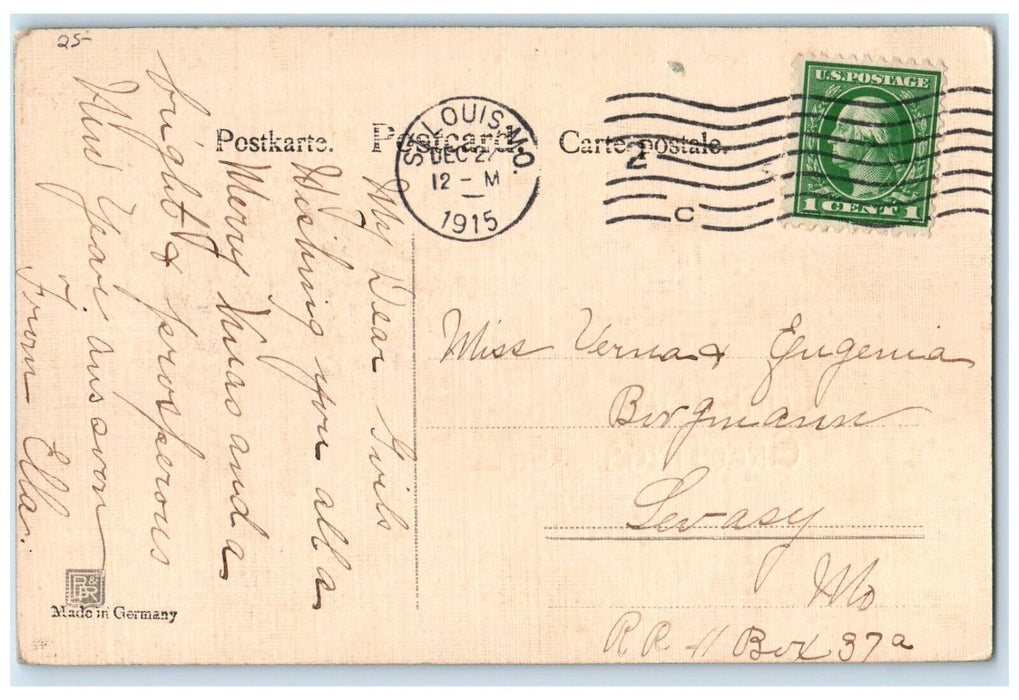 25
Postkarte. Postcard. Carte postale.
ST. LOUIS, MO.
DEC 27
12 - M
1915
2
C
U.S. POSTAGE
1 CENT 1
My Dear Girls
Wishing you all a
Merry Xmas and a
bright & prosperous
New Year. Ans soon
From Ella.
Miss Verna & Eugenia
Borgmann
Levasy
Mo
RR 11 Box 37a
Made in Germany